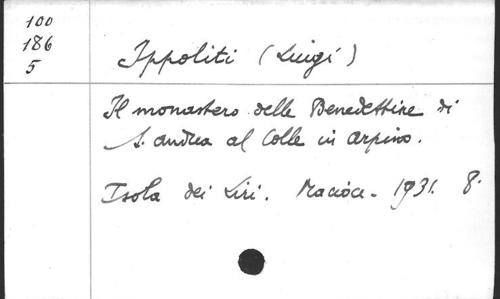 100
186
5
Ippoliti (Luigi)
Il monastero delle Benedettine di
S. Andrea al Colle in Arpino.
Isola dei Liri. Macioce. 1931. 8.